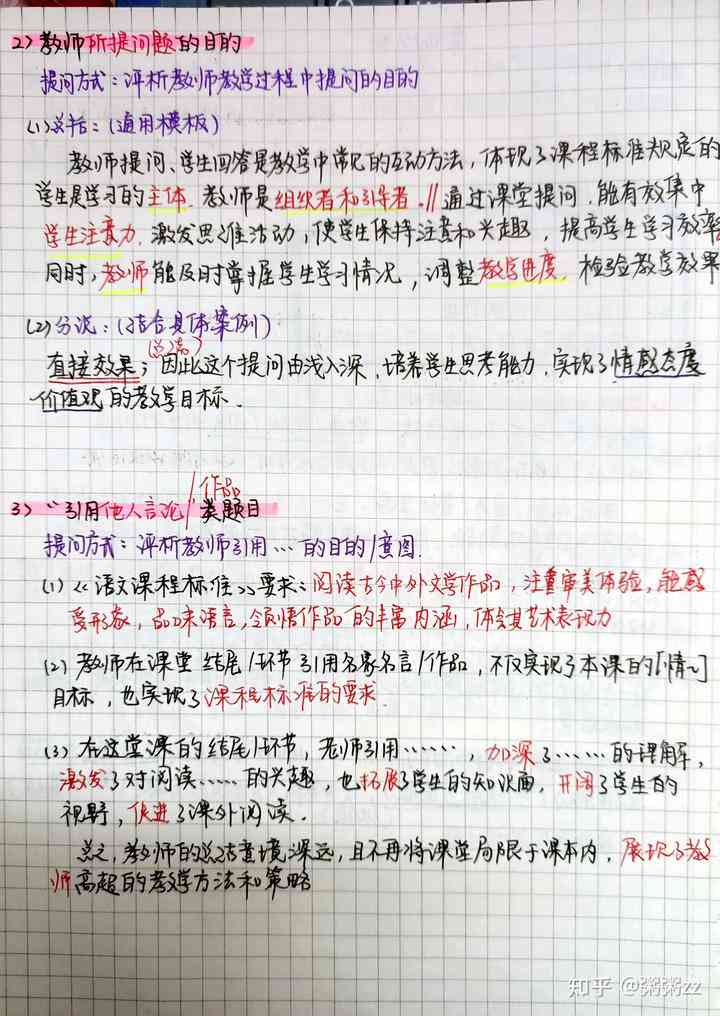 2) 教师所提问题的目的
提问方式：评析教师教学过程中提问的目的
(1)总括：(通用模板)
教师提问、学生回答是教学中常见的互动方法，体现了课程标准规定的
学生是学习的主体，教师是组织者和引导者。//通过课堂提问，能有效集中
学生注意力，激发思维活动，使学生保持注意和兴趣，提高学生学习效率
同时，教师能及时掌握学生学习情况，调整教学进度，检验教学效果
(2)分说：(结合具体案例)
(总结)
直接效果；因此这个提问由浅入深，培养学生思考能力，实现了情感态度
价值观的教学目标.
/作品
3) "引用他人言论"类题目
提问方式：评析教师引用…的目的/意图.
(1)《语文课程标准》要求：阅读古今中外文学作品，注重审美体验，能感
受形象，品味语言，领悟作品的丰富内涵，体会其艺术表现力
(2) 教师在课堂结尾/环节引用名家名言/作品，不仅实现了本课的[情~]
目标，也实现了课程标准的要求.
(3) 在这堂课的结尾/环节，老师引用……，加深了……的理解，
激发了对阅读……的兴趣，也拓展了学生的知识面，开阔了学生的
视野，促进了课外阅读.
总之，教师的总结意境深远，且不再将课堂局限于课本内，展现了教
师高超的教学方法和策略
知乎 @粥粥zz